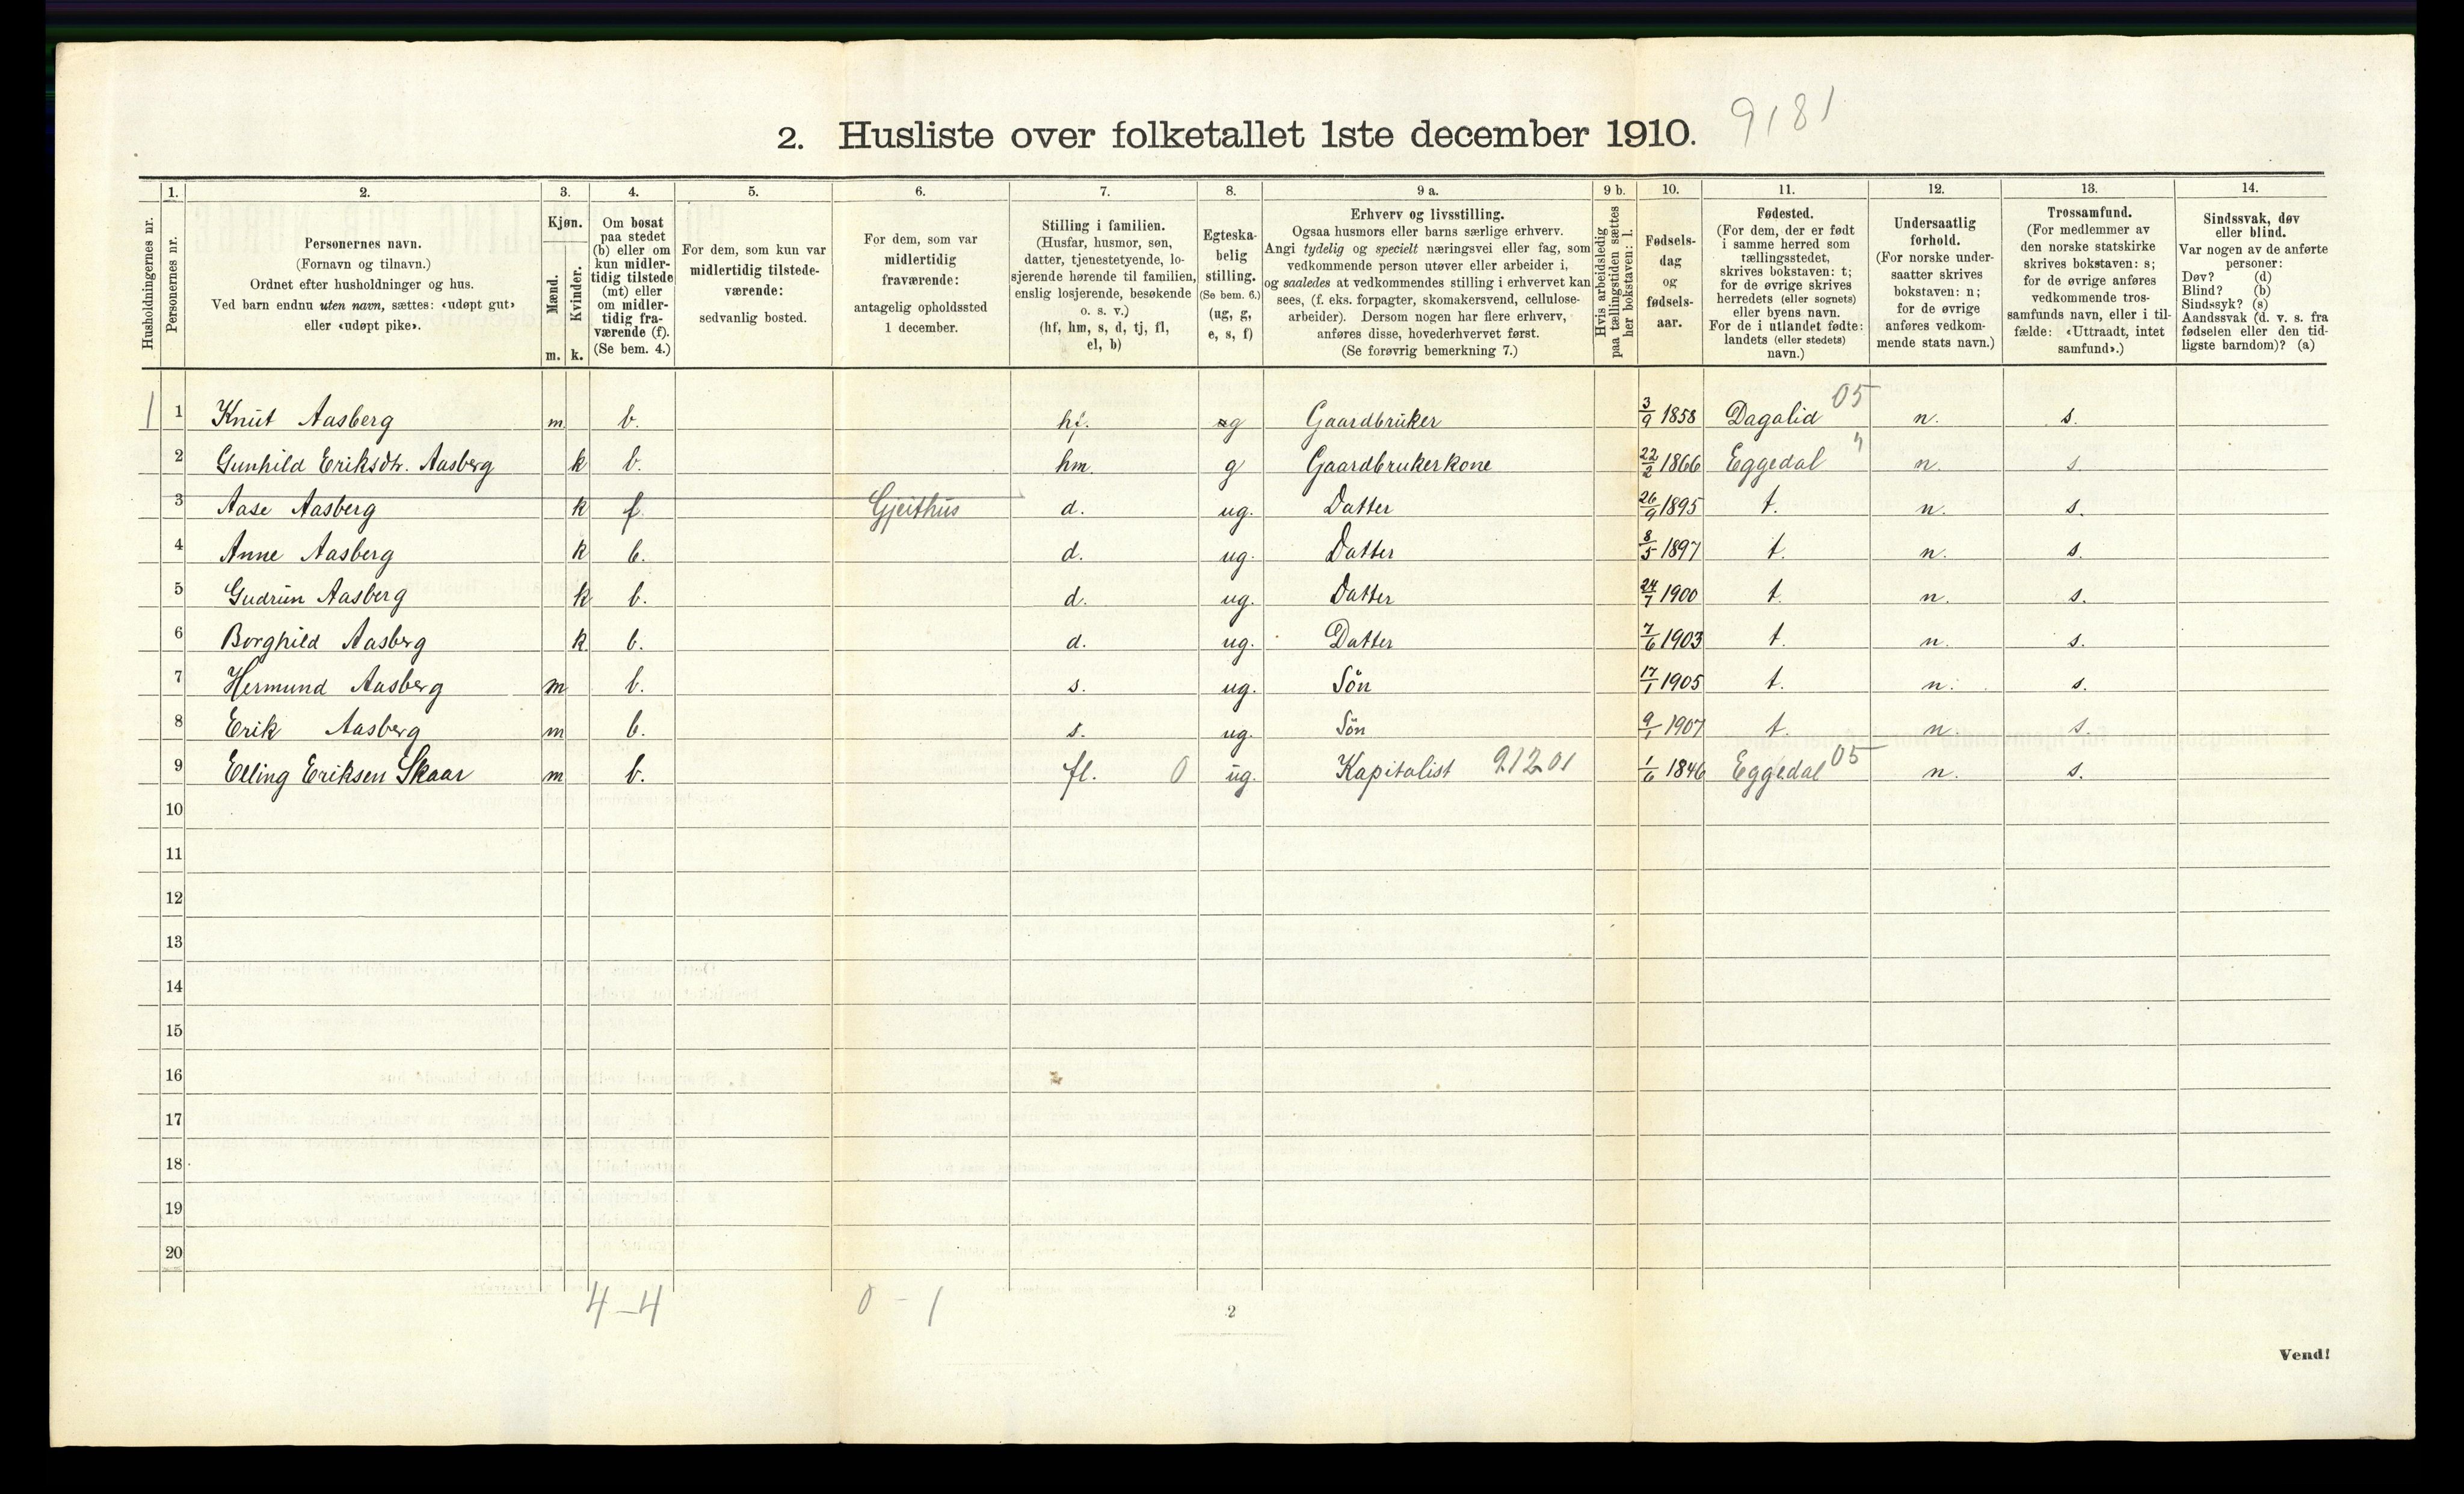 2. Husliste over folketallet 1ste december 1910. 9181
Husholdningernes nr.
1. Personernes nr.
2. Personernes navn. (Fornavn og tilnavn.) Ordnet efter husholdninger og hus. Ved barn endnu uten navn, sættes: «udøpt gut» eller «udøpt pike».
3. Kjøn. Mænd. m. Kvinder. k.
4. Om bosat paa stedet (b) eller om kun midlertidig tilstede (mt) eller om midlertidig fraværende (f). (Se bem. 4.)
5. For dem, som kun var midlertidig tilstedeværende: sedvanlig bosted.
6. For dem, som var midlertidig fraværende: antagelig opholdssted 1 december.
7. Stilling i familien. (Husfar, husmor, søn, datter, tjenestetyende, losjerende hørende til familien, enslig losjerende, besøkende o. s. v.) (hf, hm, s, d, tj, fl, el, b)
8. Egteskabelig stilling. (Se bem. 6.) (ug, g, e, s, f)
9 a. Erhverv og livsstilling. Ogsaa husmors eller barns særlige erhverv. Angi tydelig og specielt næringsvei eller fag, som vedkommende person utøver eller arbeider i, og saaledes at vedkommendes stilling i erhvervet kan sees, (f. eks. forpagter, skomakersvend, cellulosearbeider). Dersom nogen har flere erhverv, anføres disse, hovederhvervet først. (Se forøvrig bemerkning 7.)
9 b. Hvis arbeidsledig paa tællingstiden sættes her bokstaven: l.
10. Fødselsdag og fødselsaar.
11. Fødested. (For dem, der er født i samme herred som tællingsstedet, skrives bokstaven: t; for de øvrige skrives herredets (eller sognets) eller byens navn. For de i utlandet fødte: landets (eller stedets) navn.)
12. Undersaatlig forhold. (For norske undersaatter skrives bokstaven: n; for de øvrige anføres vedkommende stats navn.)
13. Trossamfund. (For medlemmer av den norske statskirke skrives bokstaven: s; for de øvrige anføres vedkommende trossamfunds navn, eller i tilfælde: «Uttraadt, intet samfund».)
14. Sindssvak, døv eller blind. Var nogen av de anførte personer: Døv? (d) Blind? (b) Sindssyk? (s) Aandssvak (d. v. s. fra fødselen eller den tidligste barndom)? (a)
1 1 Knut Aasberg m b. hf. g Gaardbruker 3/9 1858 Dagalid 05 n. s.
2 Gunhild Eriksdtr. Aasberg k b. hm. g Gaardbrukerkone 22/2 1866 Eggedal " n. s.
3 Aase Aasberg k f Gjeithus d. ug. Datter 26/9 1895 t. n. s.
4 Anne Aasberg k b. d. ug. Datter 8/5 1897 t. n. s.
5 Gudrun Aasberg k b. d. ug. Datter 24/7 1900 t. n. s.
6 Borghild Aasberg k b. d. ug. Datter 7/6 1903 t. n. s.
7 Hermund Aasberg m b. s. ug. Sön 17/1 1905 t. n. s.
8 Erik Aasberg m b. s. ug. Sön 9/1 1907 t. n. s.
9 Elling Eriksen Skaar m b. fl. 0 ug. Kapitalist 91201 1/6 1846 Eggedal 05 n. s.
10
11
12
13
14
15
16
17
18
19
20
4-4 0-1
2
Vend!